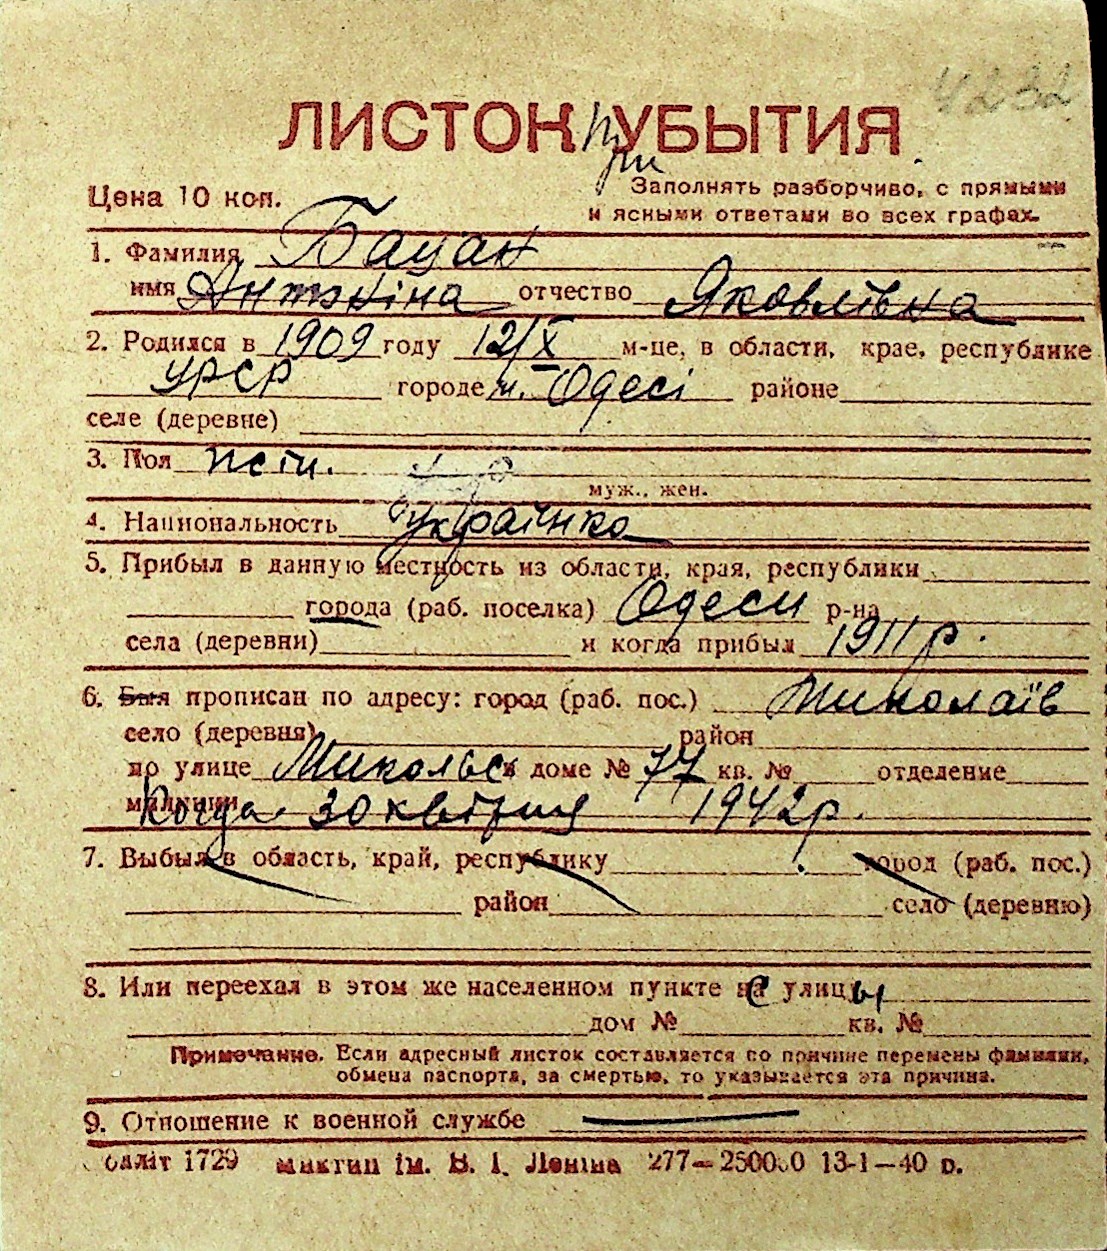 4232
ЛИСТОК При УБЫТИЯ
Цена 10 коп. Заполнять разборчиво, с прямыми
и ясными ответами во всех графах.
1. Фамилия Бацан
имя Антоніна отчество Яковлівна
2. Родился в 1909 году 12/X м-це, в области, крае, республике
УРСР городе м. Одесі районе
селе (деревне)
3. Пол
муж., жен.
4. Национальность українка
5. Прибыл в данную местность из области, края, республики
города (раб. поселка) Одеси р-на
села (деревни) и когда прибыл 1911 р.
6. Был прописан по адресу: город (раб. пос.) Миколаїв
село (деревня) район
по улице Микольск доме № 77 кв. № отделение
милиции Когда 30 квітня 1942 р.
7. Выбыл в область, край, республику город (раб. пос.)
район село (деревню)
8. Или переехал в этом же населенном пункте с улицы
дом № кв. №
Примечание. Если адресный листок составляется по причине перемены фамилии,
обмена паспорта, за смертью, то указывается эта причина.
9. Отношение к военной службе
1729 ім. В. І. Леніна 277—250000 13-1—40 р.